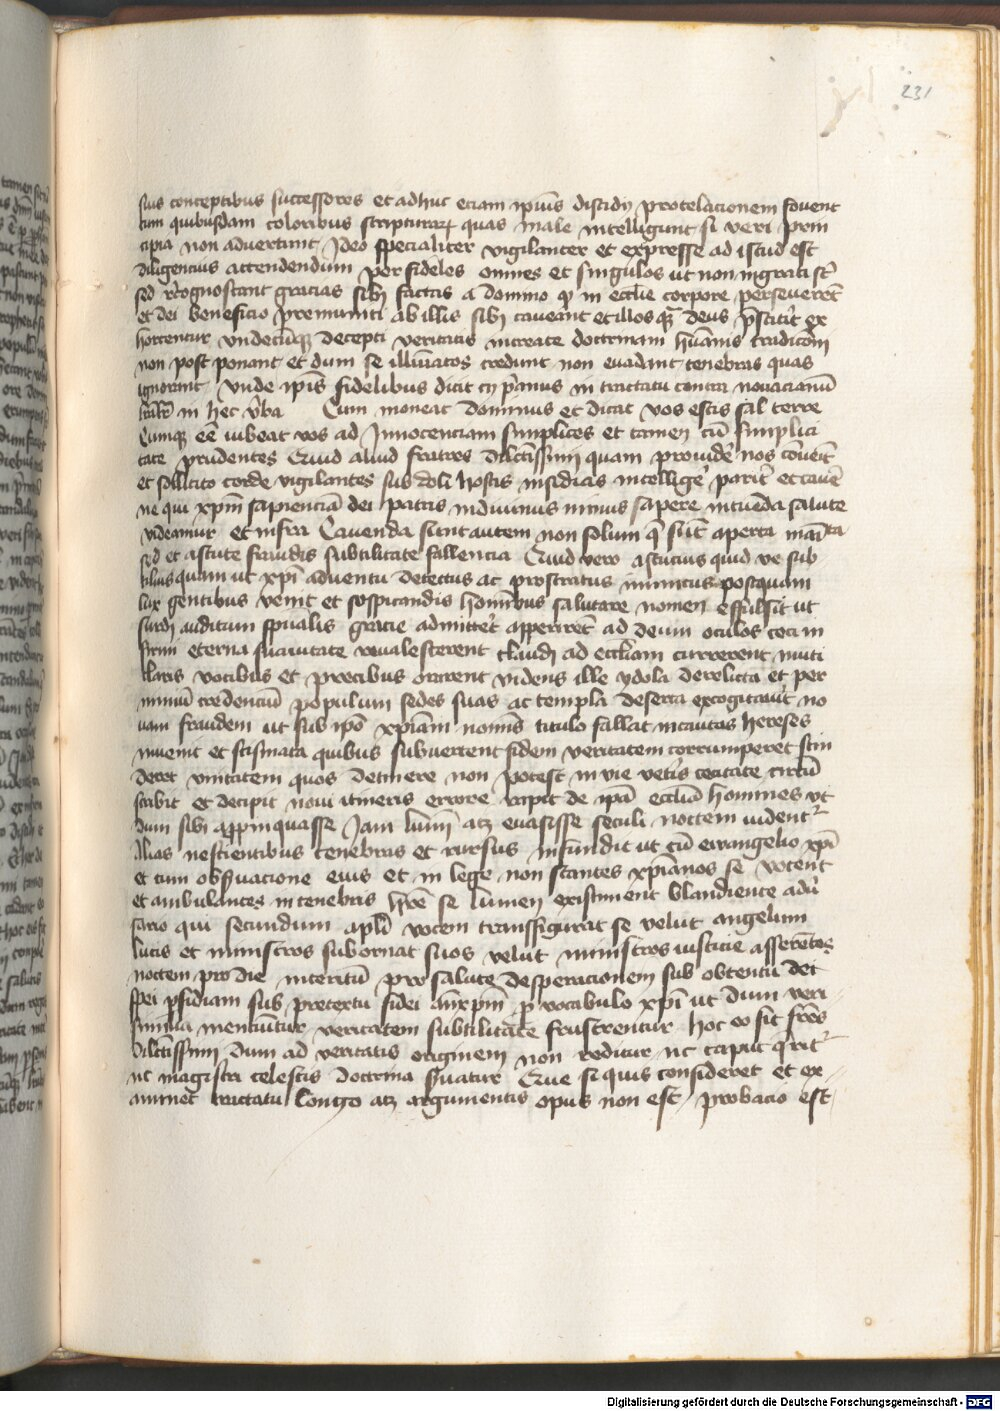 231
suis conceptibus successores et adhuc eciam ipius discidij protelacionem fovent
tum quibusdam coloribus scripturarꝝ quas male intelligunt si veri prin
cipia non advertunt Ideo specialiter vigilanter et expresse ad istud est
diligencius attendendum per fideles omnes et singulos ut non ingrati st̄
sed recognoscant gracias sibi factas a domino qꝫ in ecclie corpore perseverēt
et dei beneficio premuniti ab illis sibi caveant et illos qꝫ deus p̄scit̉it ex
hortentur undecūqꝫ decepti veritatis increate doctrinam hūanis tradicōm
non post ponant et dum se illūīatos credunt non evadant tenebras quas
ignorant Unde ipis fidelibus dicit cip̄anus in tractatu contra novacianū
in hec v̄ba Cum moneat dominus et dicat vos estis sal terre
Cumqꝫ eē iubeat vos ad Innocenciam simplices et tamen cū simplici
tate prudentes Quid aliud fratres dilctissimi quam providē nos cōvēit
et sollicito corde vigilantes subdoli hostis insidias intelligē parit̉ et cavē
ne qui xpm̄ sapienciā dei patris induimus minus sapere in tuēda salute
videamur et infra Cavenda sunt autem non solum q̄ sūt aperta maīta
sed et astute fraudis subtilitate fallencia Quid vero astucius quid ve sub
tilius quam ut xpī adventu detectus ac prostratus inimicus postquam
lux gentibus venit et sospitandis hominibus salutare nomen effulsit ut
surdi auditum spualis gracie admitterēt apperirēt ad deum oculos ceci in
firmi eterna sanitate revalescerent claudi ad eccliam currerent muti
claris vocibus et precibus orarent videns ille ydola derelicta et per
nimiū credenciū populum sedes suas ac templa deserta excogitavit no
vam fraudem ut sub ipō xpiani nois titulo fallat incautos hereses
invenit et scismata quibus subverteret fidem veritatem corrumperet scin
deret unitatem quos detinere non potest in vie vetis cecitate circū
scribit et decipit novi itineris errore rapit de ipā ecclia homines ut
dum sibi appinquasse Iam lumī atqꝫ evasisse seculi noctem vident̉
Alias nescientibus tenebras et rursus infundit ut cū ewangelio xpī
et cum obs̄uacione eius et in lege non stantes xpianos se vocent
et ambulantes in tenebris hr̄e se lumen existiment blandiente adv̄
sario qui secundum apli vocem transfigurat se velut angelum
lucis et ministros subornat suos velut ministros iusticie asserētes
noctem pro die interitū pro salute desperacionem sub obtentu dei
spei p̄fidiam sub pretextu fidei antixpm̄ p vocabulo xpī ut dum veri
similia menciūtur veritatem subtilitate frustrentur hoc eo fit fr̄es
dilctissimi dum ad veritatis originem non reditur nc caput q̄rit̉
nc magistri celestis doctrina s̄vatur Que si quis consideret et ex
aminet tractatu longo atqꝫ argumentis opus non est probacio est
Digitalisierung gefördert durch die Deutsche Forschungsgemeinschaft - DFG